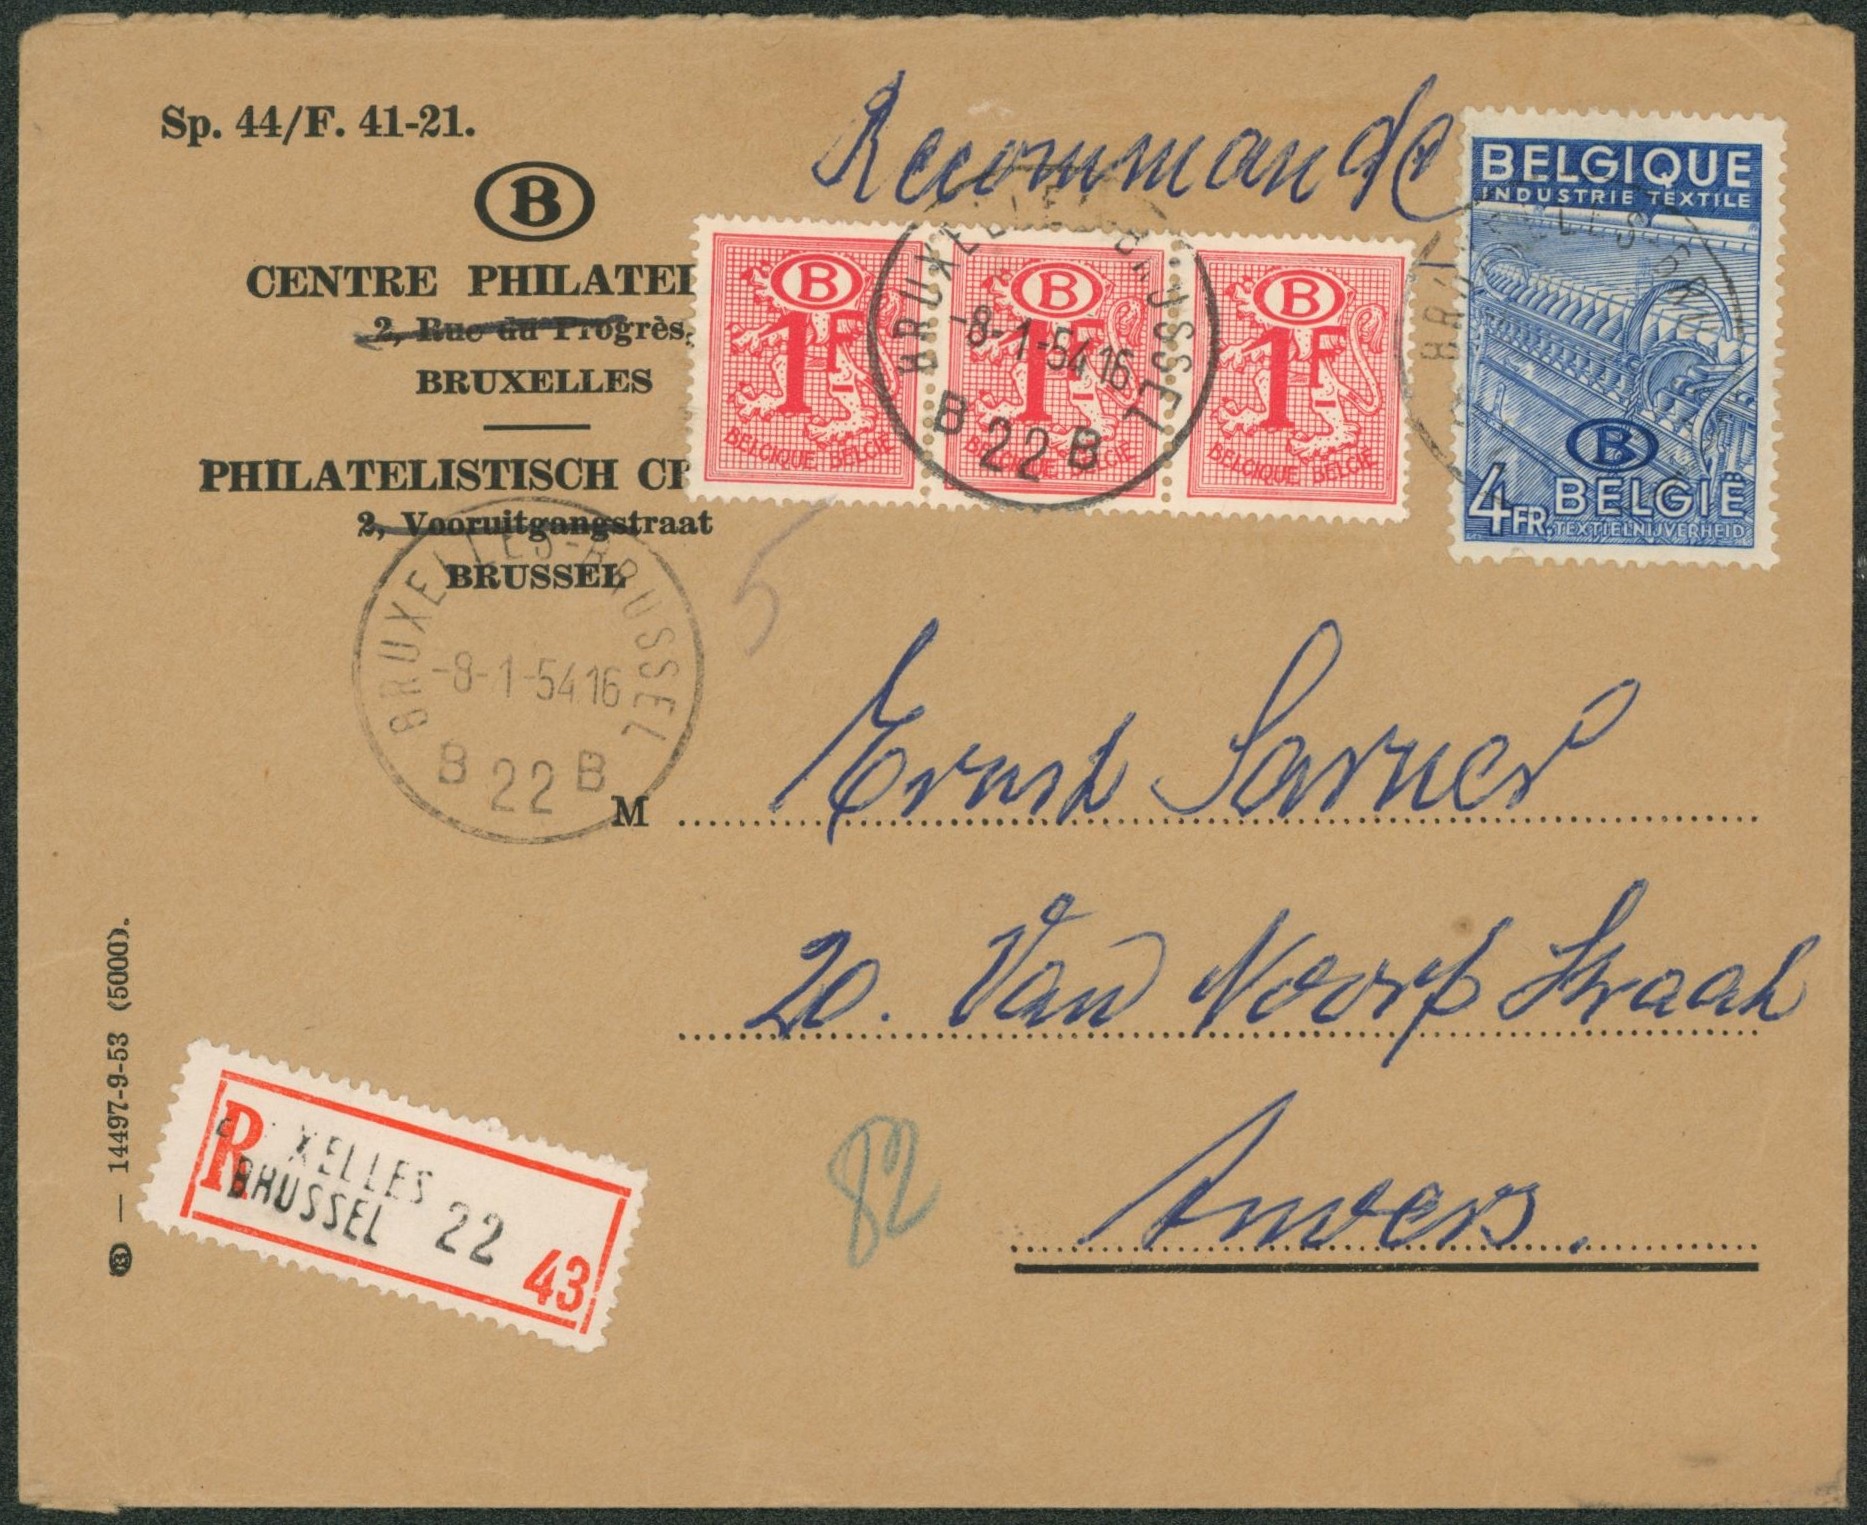 Sp. 44/F. 41-21.
B
CENTRE PHILATEL
2, Rue du Progrès,
BRUXELLES
PHILATELISTISCH CE
2, Vooruitgangstraat
BRUSSEL
Recommandé
B
1F
BELGIQUE BELGIË
B
1F
BELGIQUE BELGIË
B
1F
BELGIQUE BELGIË
BRUXELLES-BRUSSEL
-8-1-54 16
B 22 B
BELGIQUE
INDUSTRIE TEXTILE
B
4 FR. BELGIË
TEXTIELNIJVERHEID
BRUXELLES-BRUSSEL
-8-1-54 16
B 22 B
5
M Ernst Sarner
20. Van Noort Straat
Anvers.
82
14497-9-53 (5000).
R
XELLES
BRUSSEL 22
43